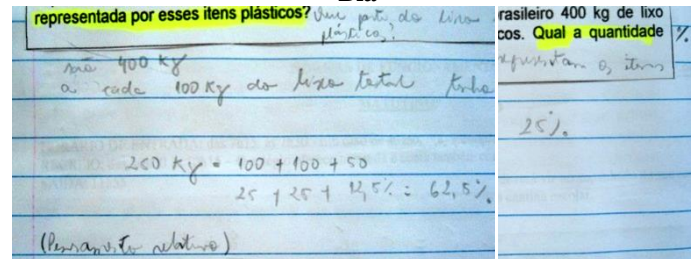 representada por esses itens plásticos? Que parte do lixo
plástico?
são 400 Kg
a cada 100 Kg do lixo total tenho
250 Kg = 100 + 100 + 50
25 + 25 + 12,5% = 62,5%.
(Pensamento relativo)
rasileiro 400 kg de lixo
cos. Qual a quantidade %
representam os itens
25%.